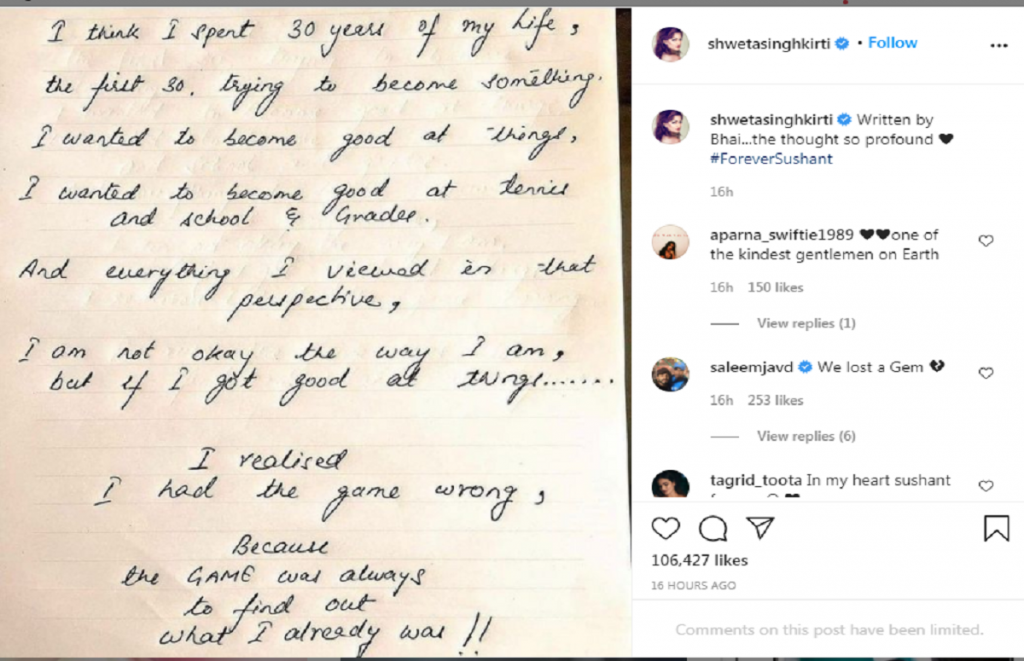 I think I spent 30 years of my life,
the first 30, trying to become something.
I wanted to become good at things,
I wanted to become good at tennis
and school & Grades.
And everything I viewed in that
perspective,
I am not okay the way I am,
but if I got good at things.......
I realised
I had the game wrong,
Because
the GAME was always
to find out
what I already was !!
shwetasinghkirti • Follow
shwetasinghkirti Written by
Bhai...the thought so profound 🖤
#ForeverSushant
16h
aparna_swiftie1989 🖤🖤one of
the kindest gentlemen on Earth
16h 150 likes
View replies (1)
saleemjavd We lost a Gem 💔
16h 253 likes
View replies (6)
tagrid_toota In my heart sushant
106,427 likes
16 HOURS AGO
Comments on this post have been limited.